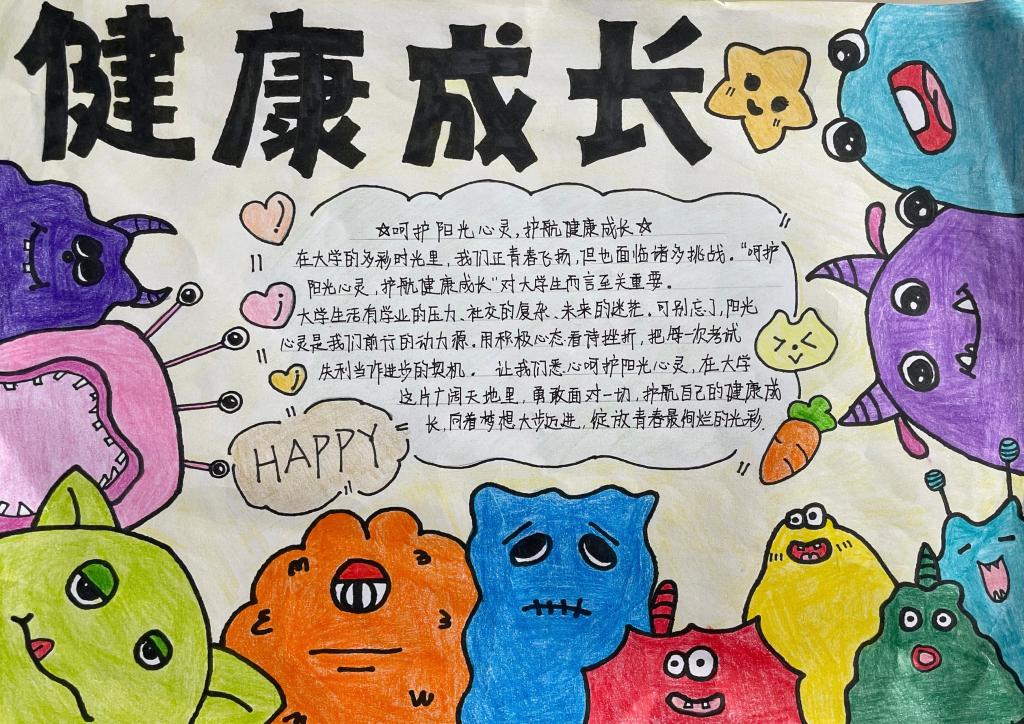 健康成长
☆呵护阳光心灵,护航健康成长☆
在大学的多彩时光里,我们正青春飞扬,但也面临诸多挑战。“呵护
阳光心灵,护航健康成长”对大学生而言至关重要。
大学生活有学业的压力、社交的复杂、未来的迷茫。可别忘了,阳光
心灵是我们前行的动力源。用积极心态看待挫折,把每一次考试
失利当作进步的契机。 让我们悉心呵护阳光心灵,在大学
这片广阔天地里,勇敢面对一切,护航自己的健康成
长,向着梦想大步迈进,绽放青春最绚烂的光彩.
HAPPY